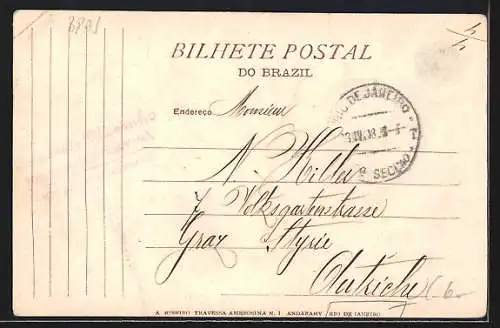 BILHETE POSTAL
DO BRAZIL
Endereço Monsieur
RIO DE JANEIRO
8ª SECÇÃO
N. Hiller
7 Volksgartenstrasse
Graz Styrie
Autriche
A. RIBEIRO TRAVESSA AMBROSINA N. 1 ANDARAHY (RIO DE JANEIRO)